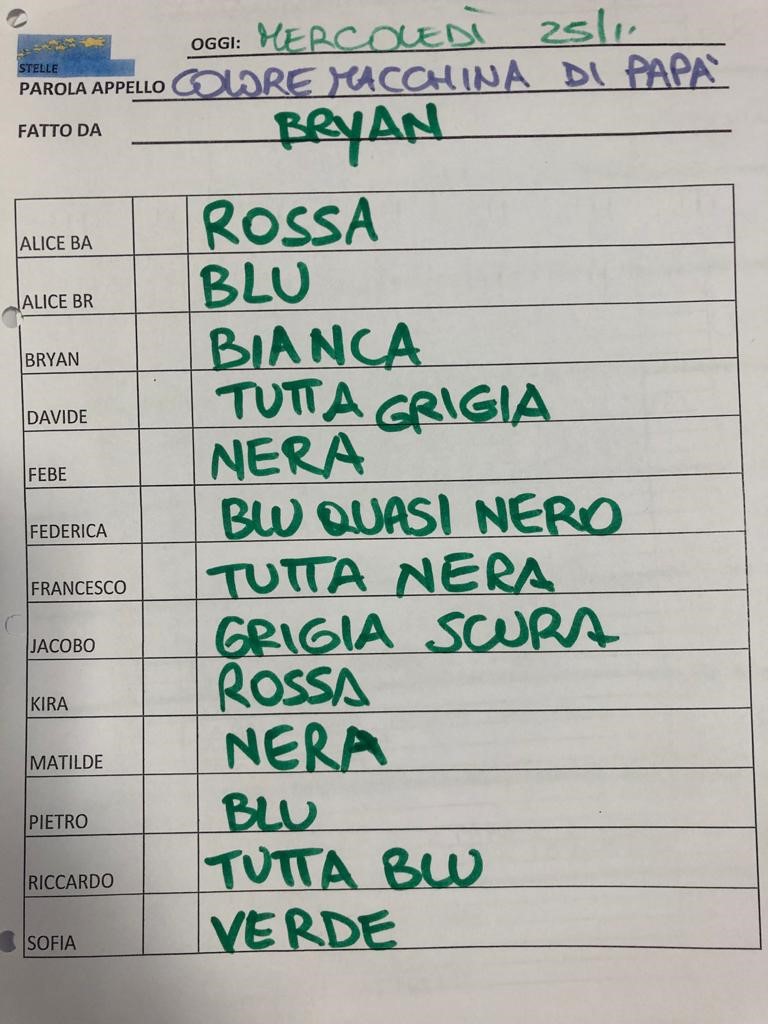 OGGI: MERCOLEDÌ 25/11
STELLE
PAROLA APPELLO COLORE MACCHINA DI PAPA'
FATTO DA BRYAN
ALICE BA ROSSA
ALICE BR BLU
BRYAN BIANCA
DAVIDE TUTTA GRIGIA
FEBE NERA
FEDERICA BLU QUASI NERO
FRANCESCO TUTTA NERA
JACOBO GRIGIA SCURA
KIRA ROSSA
MATILDE NERA
PIETRO BLU
RICCARDO TUTTA BLU
SOFIA VERDE